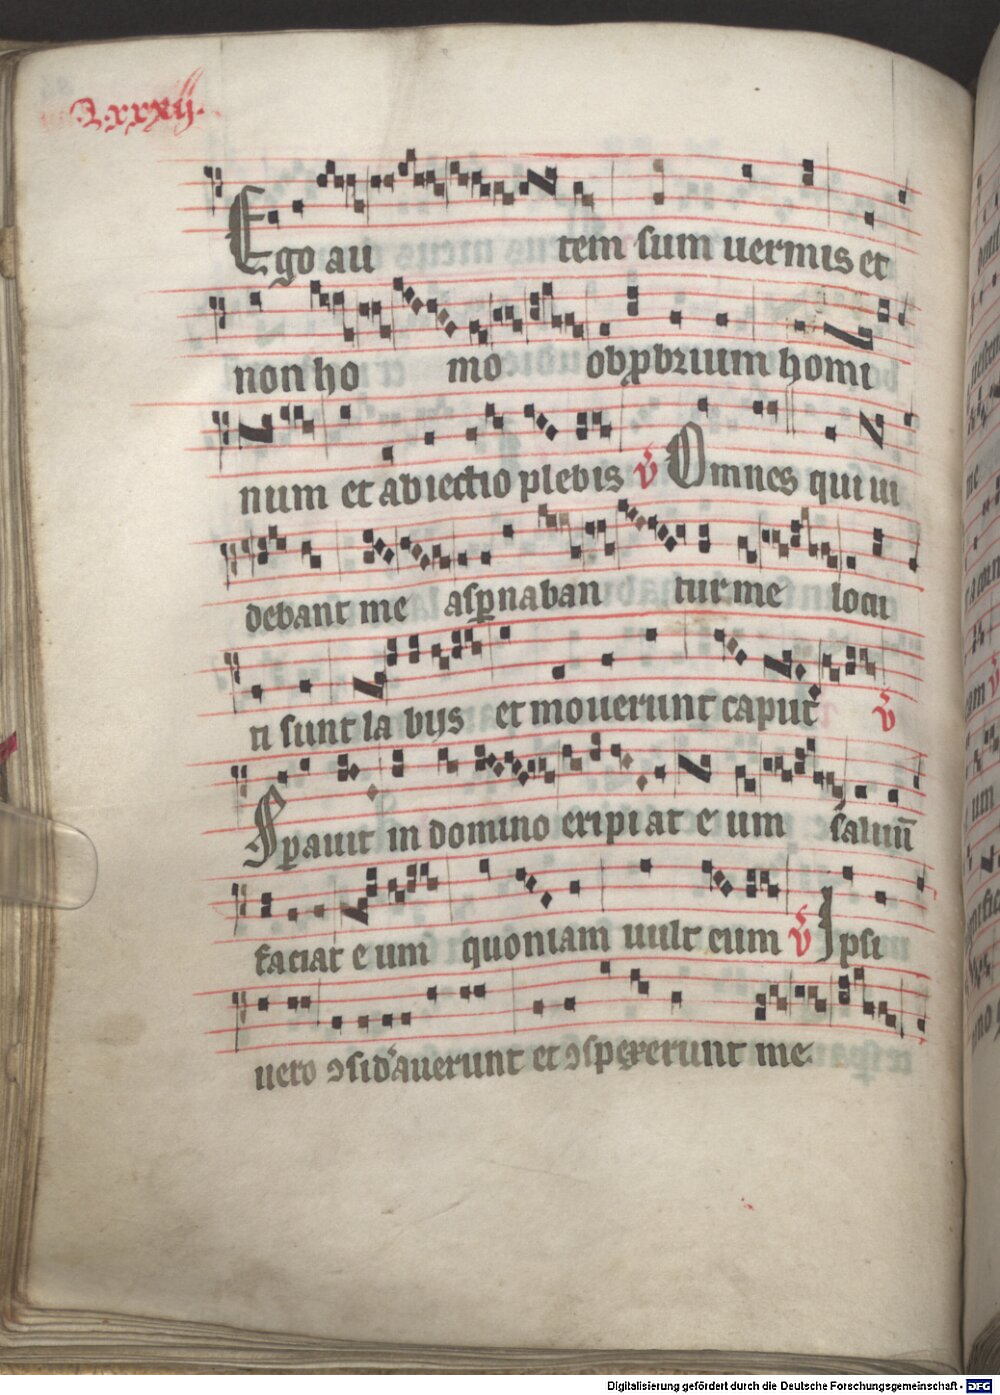 Lxxxij.
Ego au tem sum uermis et
non ho mo obꝓbrium homi
num et abiectio plebis V̾ Omnes qui ui
debant me aspnaban tur me locu
ti sunt la bijs et mouerunt caput V̾
Sꝑauit in domino eripi at e um saluū
faciat e um quoniam uult eum V̾ Ipsi
uero ꝯsid̾auerunt et ꝯspexerunt me.
Digitalisierung gefördert durch die Deutsche Forschungsgemeinschaft - DFG